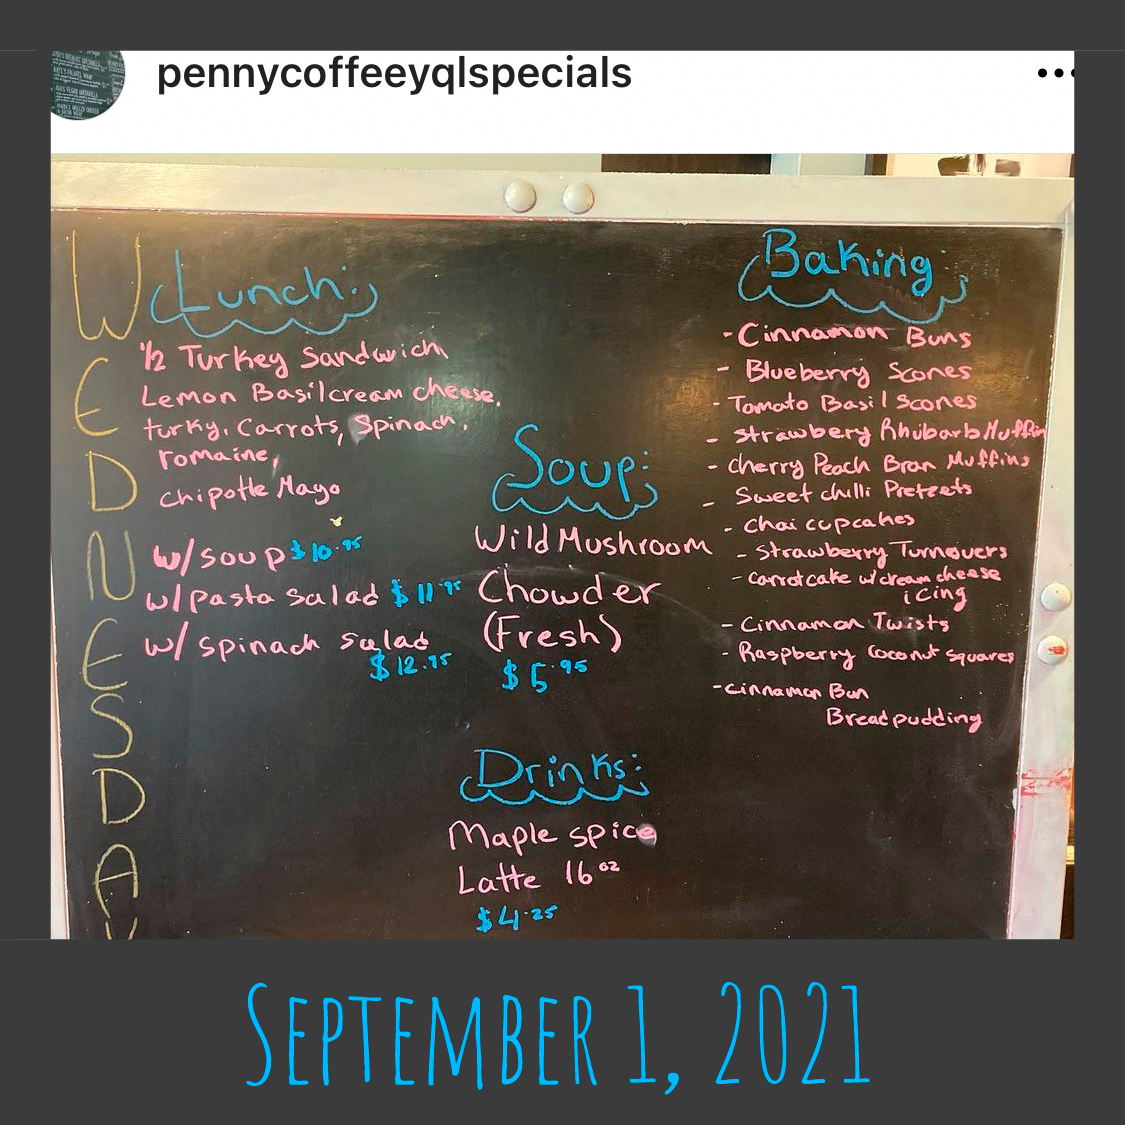 pennycoffeeyqlspecials
WEDNESDAY
Lunch:
1/2 Turkey Sandwich
Lemon Basil cream cheese,
turky, Carrots, Spinach,
romaine,
chipotle Mayo
w/soup $10.95
w/pasta salad $11.95
w/ spinach salad
$12.95
Soup:
Wild Mushroom
Chowder
(Fresh)
$5.95
Drinks:
Maple spice
Latte 16oz
$4.25
Baking:
- Cinnamon Buns
- Blueberry Scones
- Tomato Basil Scones
- Strawbery Rhubarb Muffin
- cherry Peach Bran Muffins
- Sweet chilli Pretzets
- Chai cupcakes
- Strawberry Turnovers
- carrotcake w/ cream cheese
icing
- Cinnamon Twists
- Raspberry Coconut squares
- cinnamon Bun
Breadpudding
September 1, 2021